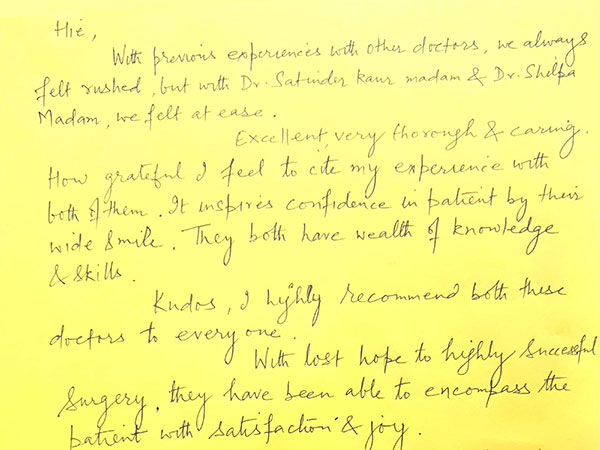 Hie,
With previous experiences with other doctors, we always
felt rushed, but with Dr. Satinder kaur madam & Dr. Shilpa
Madam, we felt at ease.
Excellent, very thorough & caring.
How grateful I feel to cite my experience with
both of them. It inspires confidence in patient by their
wide smile. They both have wealth of knowledge
& skills.
Kudos, I highly recommend both these
doctors to everyone.
With lost hope to highly successful
surgery, they have been able to encompass the
patient with satisfaction & joy.